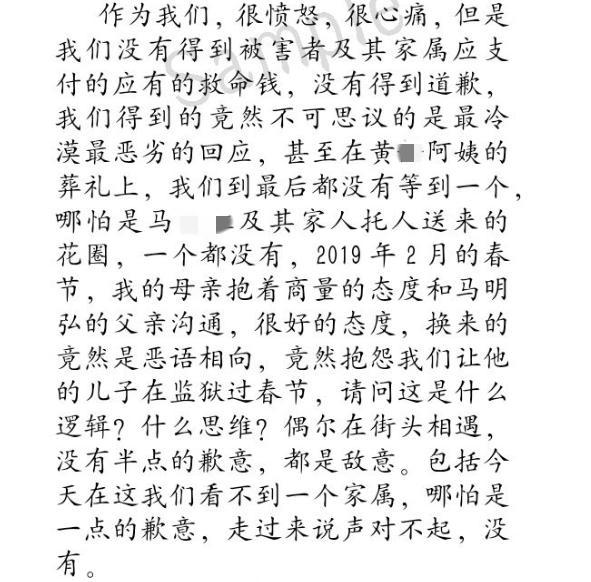 作为我们，很愤怒，很心痛，但是
我们没有得到被害者及其家属应支
付的应有的救命钱，没有得到道歉，
我们得到的竟然不可思议的是最冷
漠最恶劣的回应，甚至在黄 阿姨的
葬礼上，我们到最后都没有等到一个，
哪怕是马 及其家人托人送来的
花圈，一个都没有，2019年2月的春
节，我的母亲抱着商量的态度和马明
弘的父亲沟通，很好的态度，换来的
竟然是恶语相向，竟然抱怨我们让他
的儿子在监狱过春节，请问这是什么
逻辑？什么思维？偶尔在街头相遇，
没有半点的歉意，都是敌意。包括今
天在这我们看不到一个家属，哪怕是
一点的歉意，走过来说声对不起，没
有。
Sample